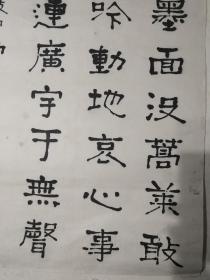 墨面没蒿莱敢
吟動地哀心事
連廣宇于無聲